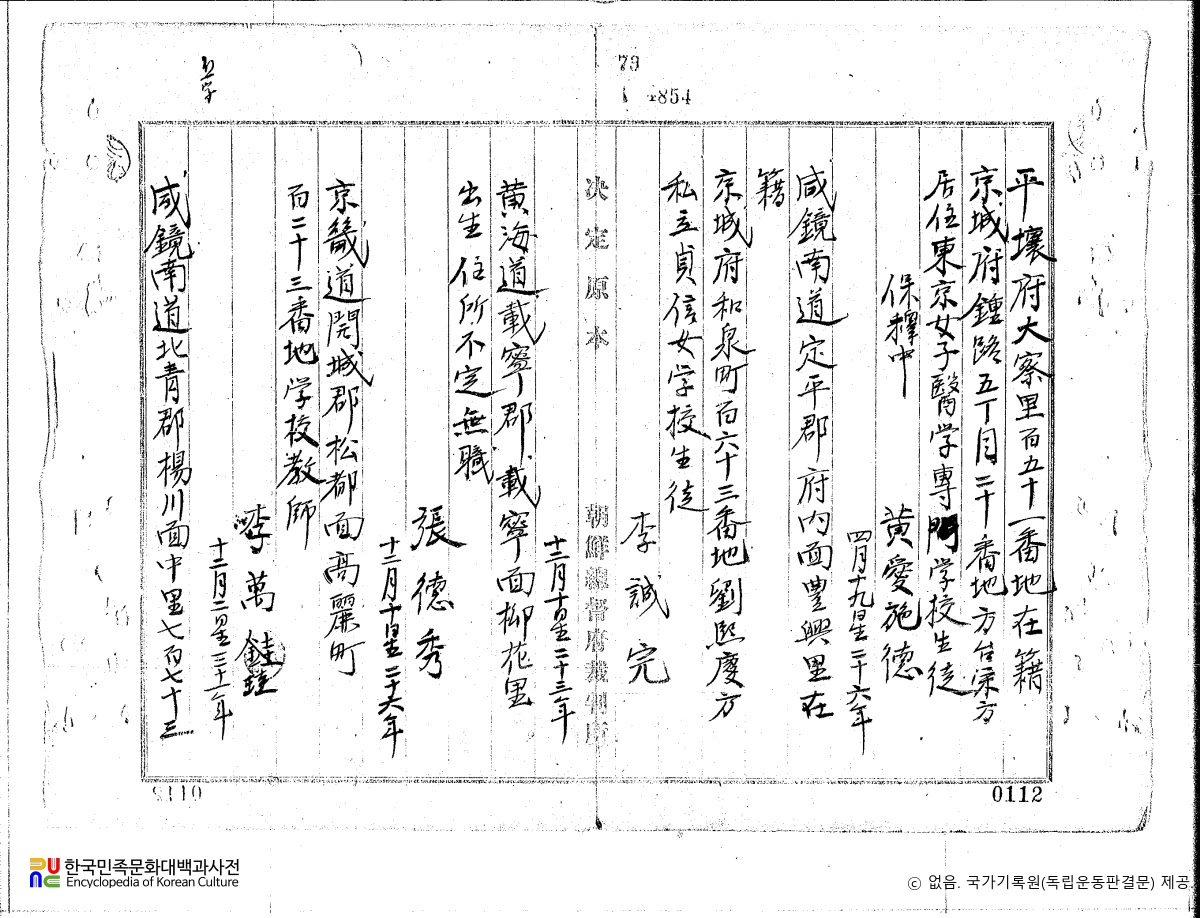 五字
73
4854
平壤府大察里百五十一番地在籍
京城府鍾路五丁目二十番地方台栄方
居住東京女子醫学專門学校生徒
保釋中
黄愛施德
四月十九日生二十六年
咸鏡南道定平郡府內面豊興里在
籍
京城府和泉町百六十三番地劉熙慶方
私立貞信女学校生徒
李誠完
十二月十日生二十三年
決定原本
朝鮮總督府裁判所
黃海道載寧郡載寧面柳花里
出生住所不定無職
張德秀
十二月十日生二十六年
京畿道開城郡松都面高麗町
百二十三番地学校教師
李萬珪
十二月二日生三十一年
咸鏡南道北青郡楊川面中里七百七十三
0112
한국민족문화대백과사전
Encyclopedia of Korean Culture
ⓒ 없음. 국가기록원(독립운동판결문) 제공